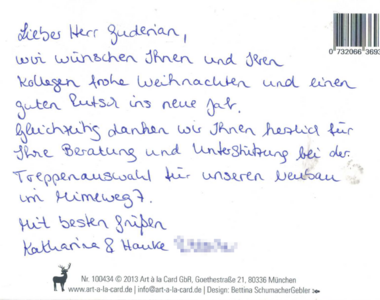 Lieber Herr Guderian,
wir wünschen Ihnen und Ihren
Kollegen frohe Weihnachten und einen
guten Rutsch ins neue Jahr.
Gleichzeitig danken wir Ihnen herzlich für
Ihre Beratung und Unterstützung bei der
Treppenauswahl für unseren Neubau
im Mimeweg 7.
Mit besten Grüßen
Katharina & Hauke
0 732066 369
Nr. 100434 © 2013 Art à la Card GbR, Goethestraße 21, 80336 München
www.art-a-la-card.de | info@art-a-la-card.de | Design: Bettina SchumacherGebler